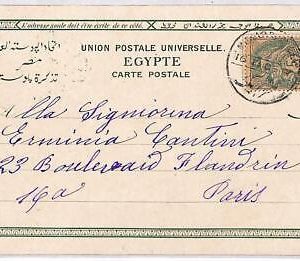 L'adresse seule doit être écrite de ce côté.
UNION POSTALE UNIVERSELLE.
EGYPTE
CARTE POSTALE
مصر
تذكرة بوستة
Alla Signorina
Erminia Cantini
23 Boulevard Flandrin
16a Paris